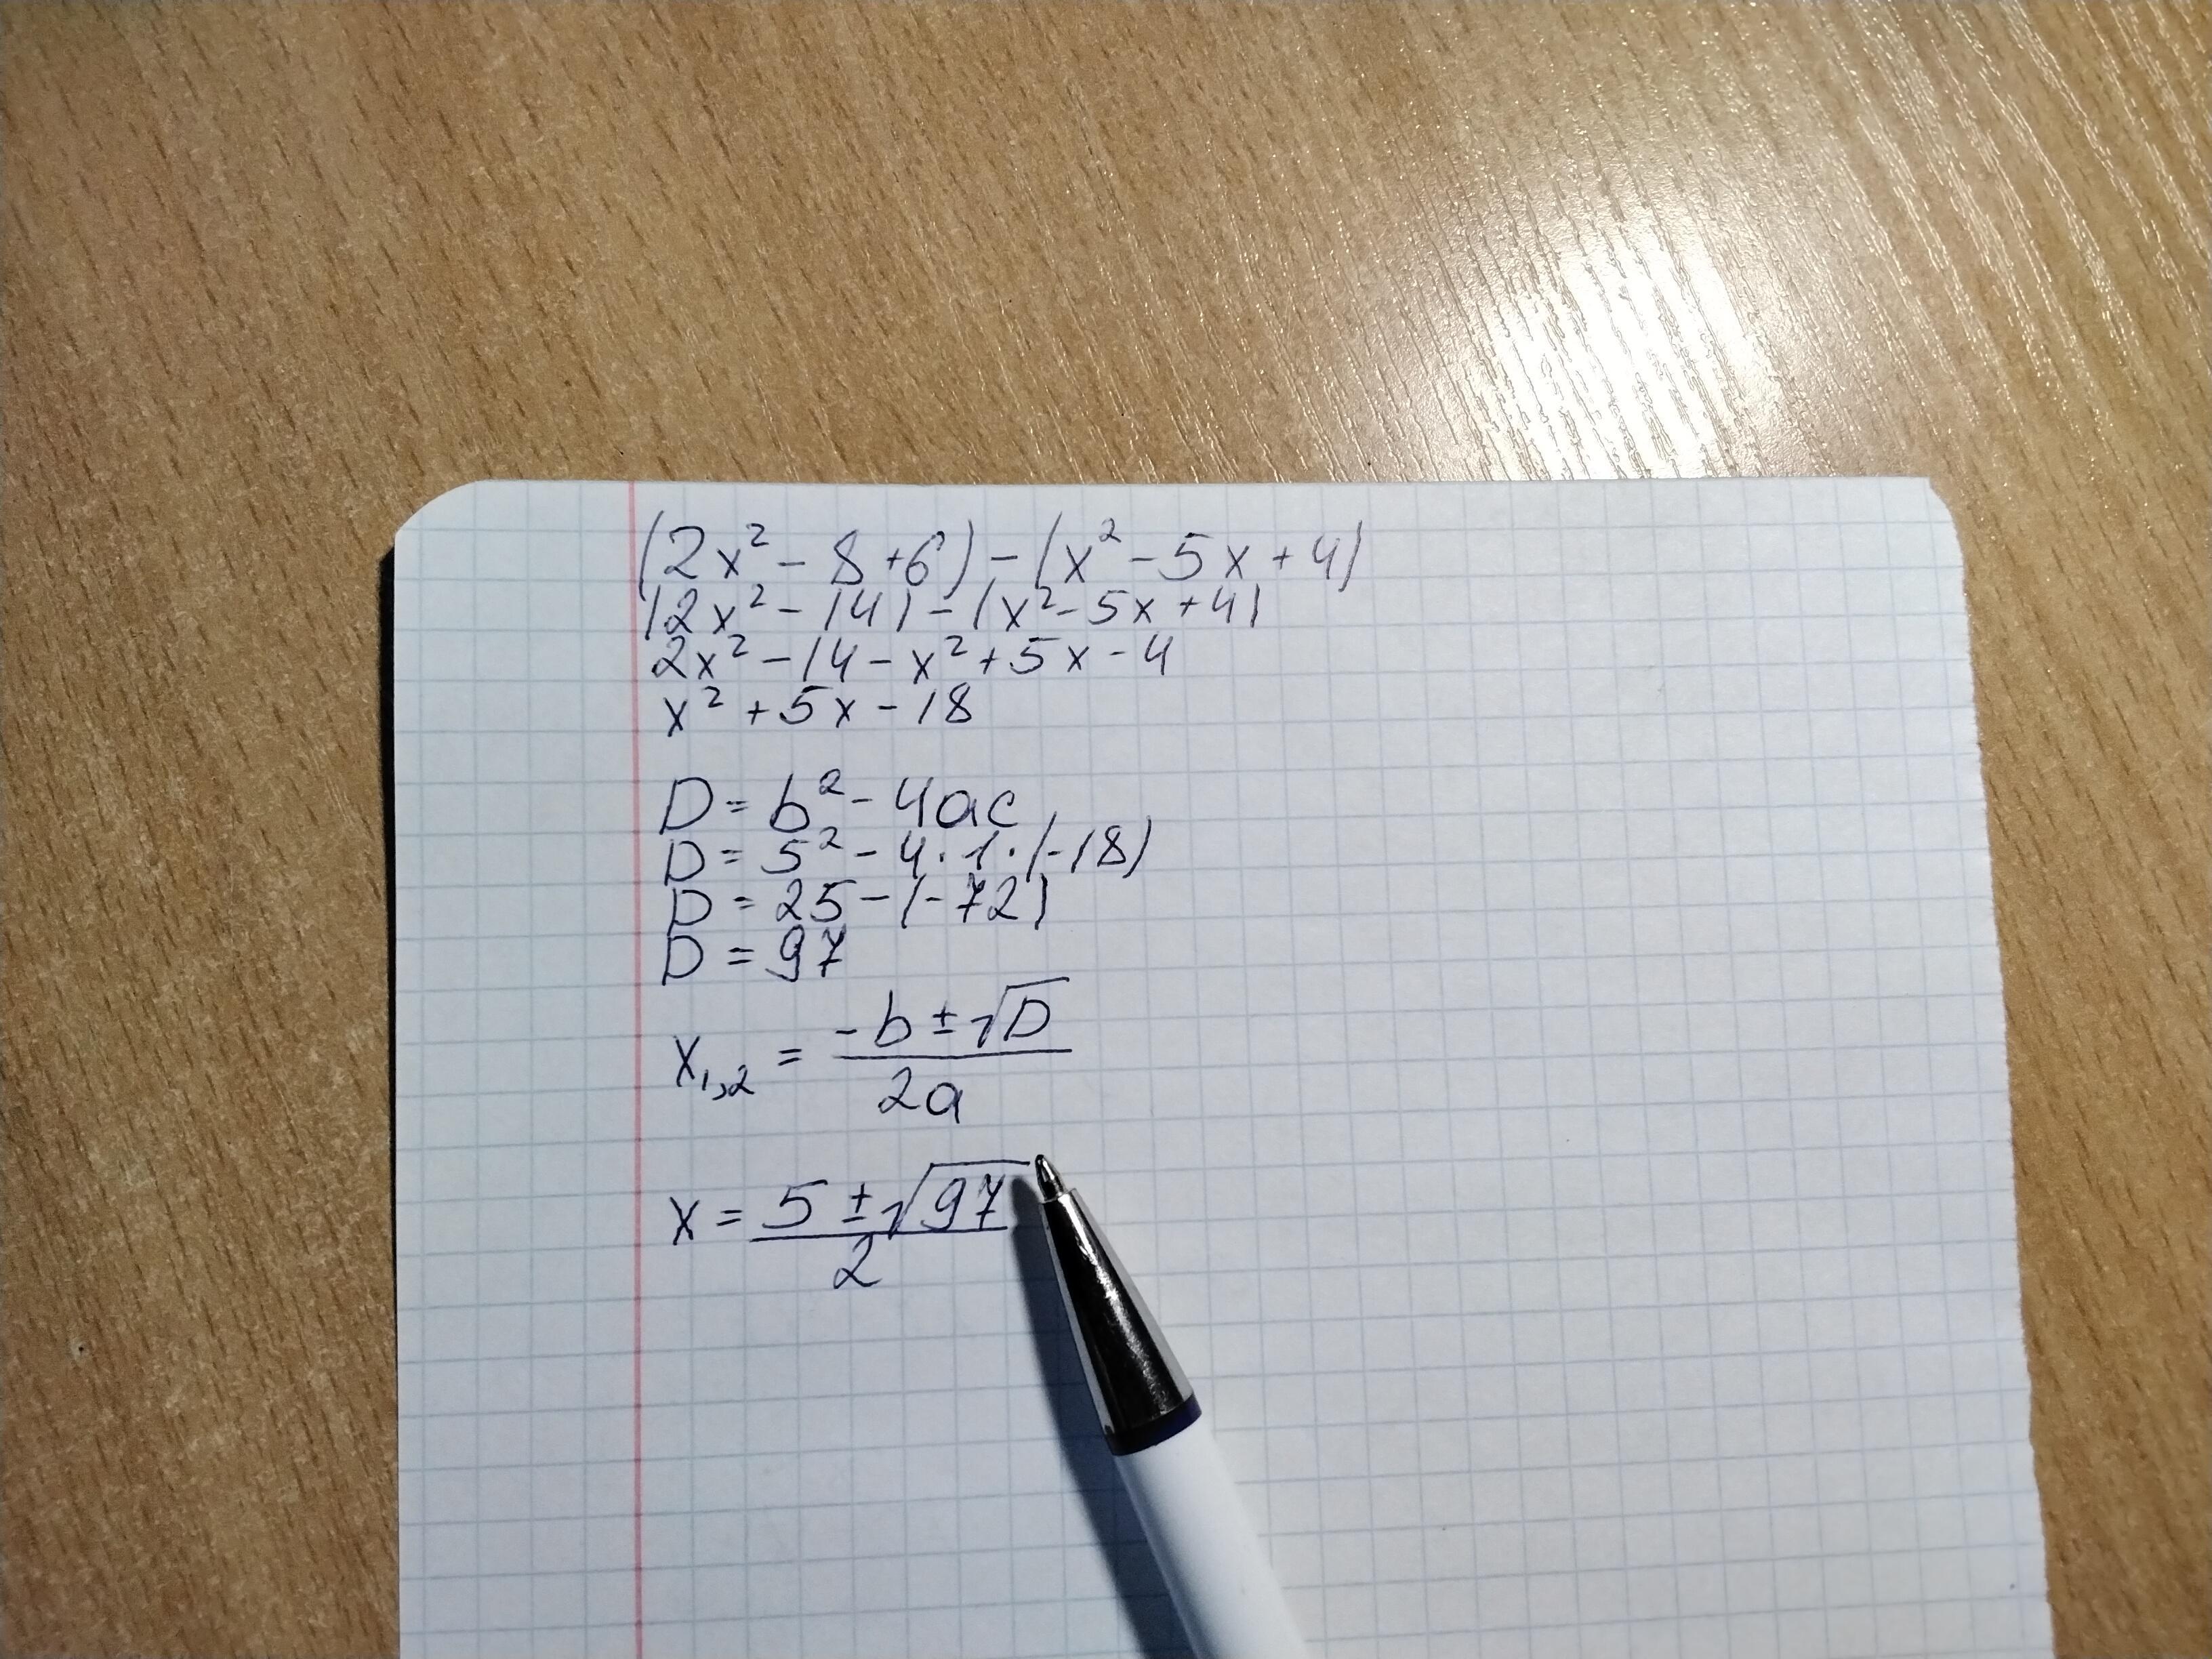 (2x² - 8 + 6) - (x² - 5x + 4)
(2x² - 14) - (x² - 5x + 4)
2x² - 14 - x² + 5x - 4
x² + 5x - 18
D = b² - 4ac
D = 5² - 4 · 1 · (-18)
D = 25 - (-72)
D = 97
x₁,₂ = (-b ± √D) / 2a
x = (5 ± √97) / 2